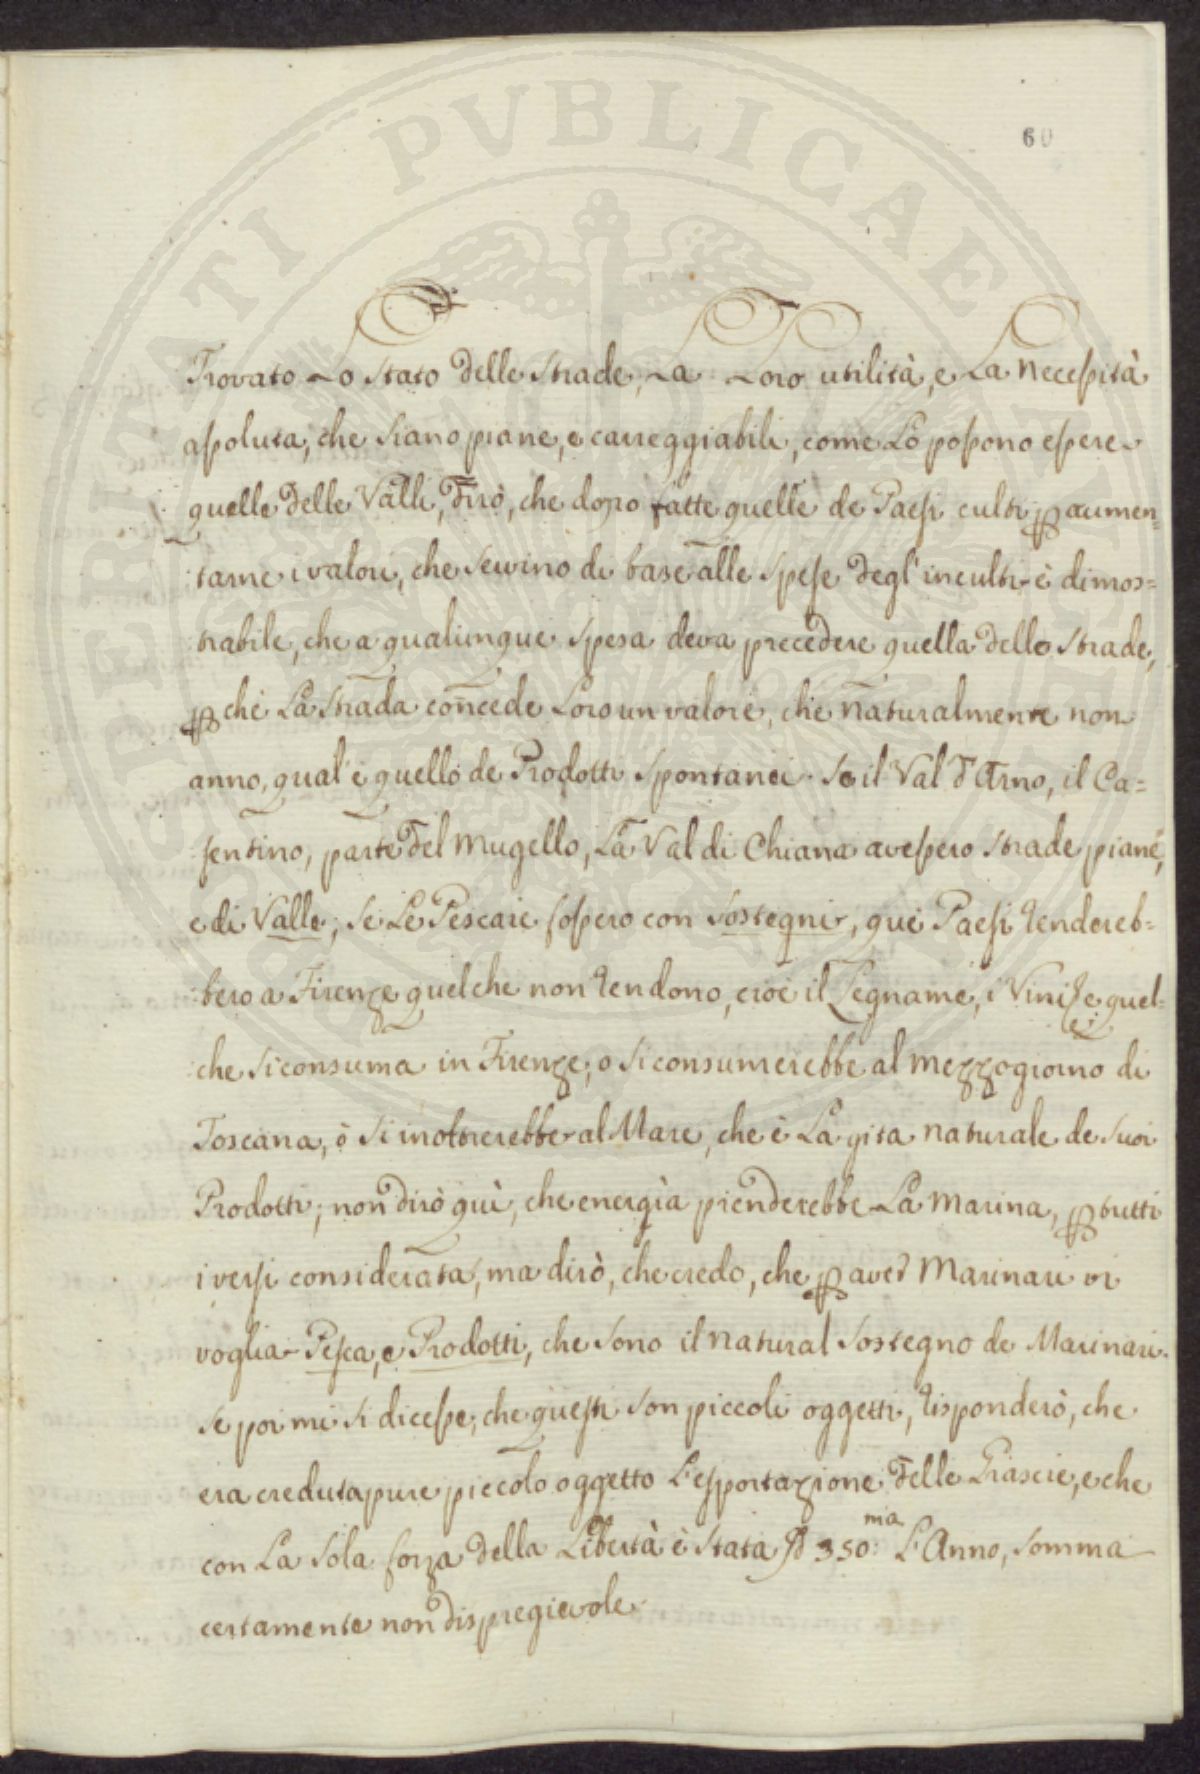 PROSPERITATI PVBLICAE AVGENDAE
60
Trovato Lo Stato delle Strade, La Loro utilità, e La necessità
assoluta, che siano piane, e carreggiabili, come Lo possono essere
quelle delle Valli, dirò, che dopo fatte quelle de Paesi culti p aumen=
tarne i valori, che servino di base alle spese degl'inculti è dimos=
trabile, che a qualunque spesa deva precedere quella delle Strade,
pche La Strada concede Loro un valore, che naturalmente non
anno, qual'è quello de Prodotti Spontanei. Se il Val d'Arno, il Ca=
sentino, parte del Mugello, La Val di Chiana avessero Strade piane,
e di Valle; Se Le Pescaie fossero con Sostegni, quei Paesi rendereb=
bero a Firenze quelche non rendono, cioè il Legname, i Vini, e quel=
che si consuma in Firenze; o si consumerebbe al mezzogiorno di
Toscana, ò si inoltrerebbe al Mare, che è La gita naturale de suoi
Prodotti; non dirò quì, che energìa prenderebbe La Marina, p tutti
i versi considerata, ma dirò, che credo, che p aver Marinari vi
voglia Pesca, e Prodotti, che sono il natural Sostegno de Marinari.
Se poi mi si dicesse, che questi son piccoli oggetti, risponderò, che
era creduta pure piccolo oggetto L'esportazione delle Grascie, e che
con La sola forza della Libertà è stata 350:ma L'Anno, somma
certamente non dispregievole.